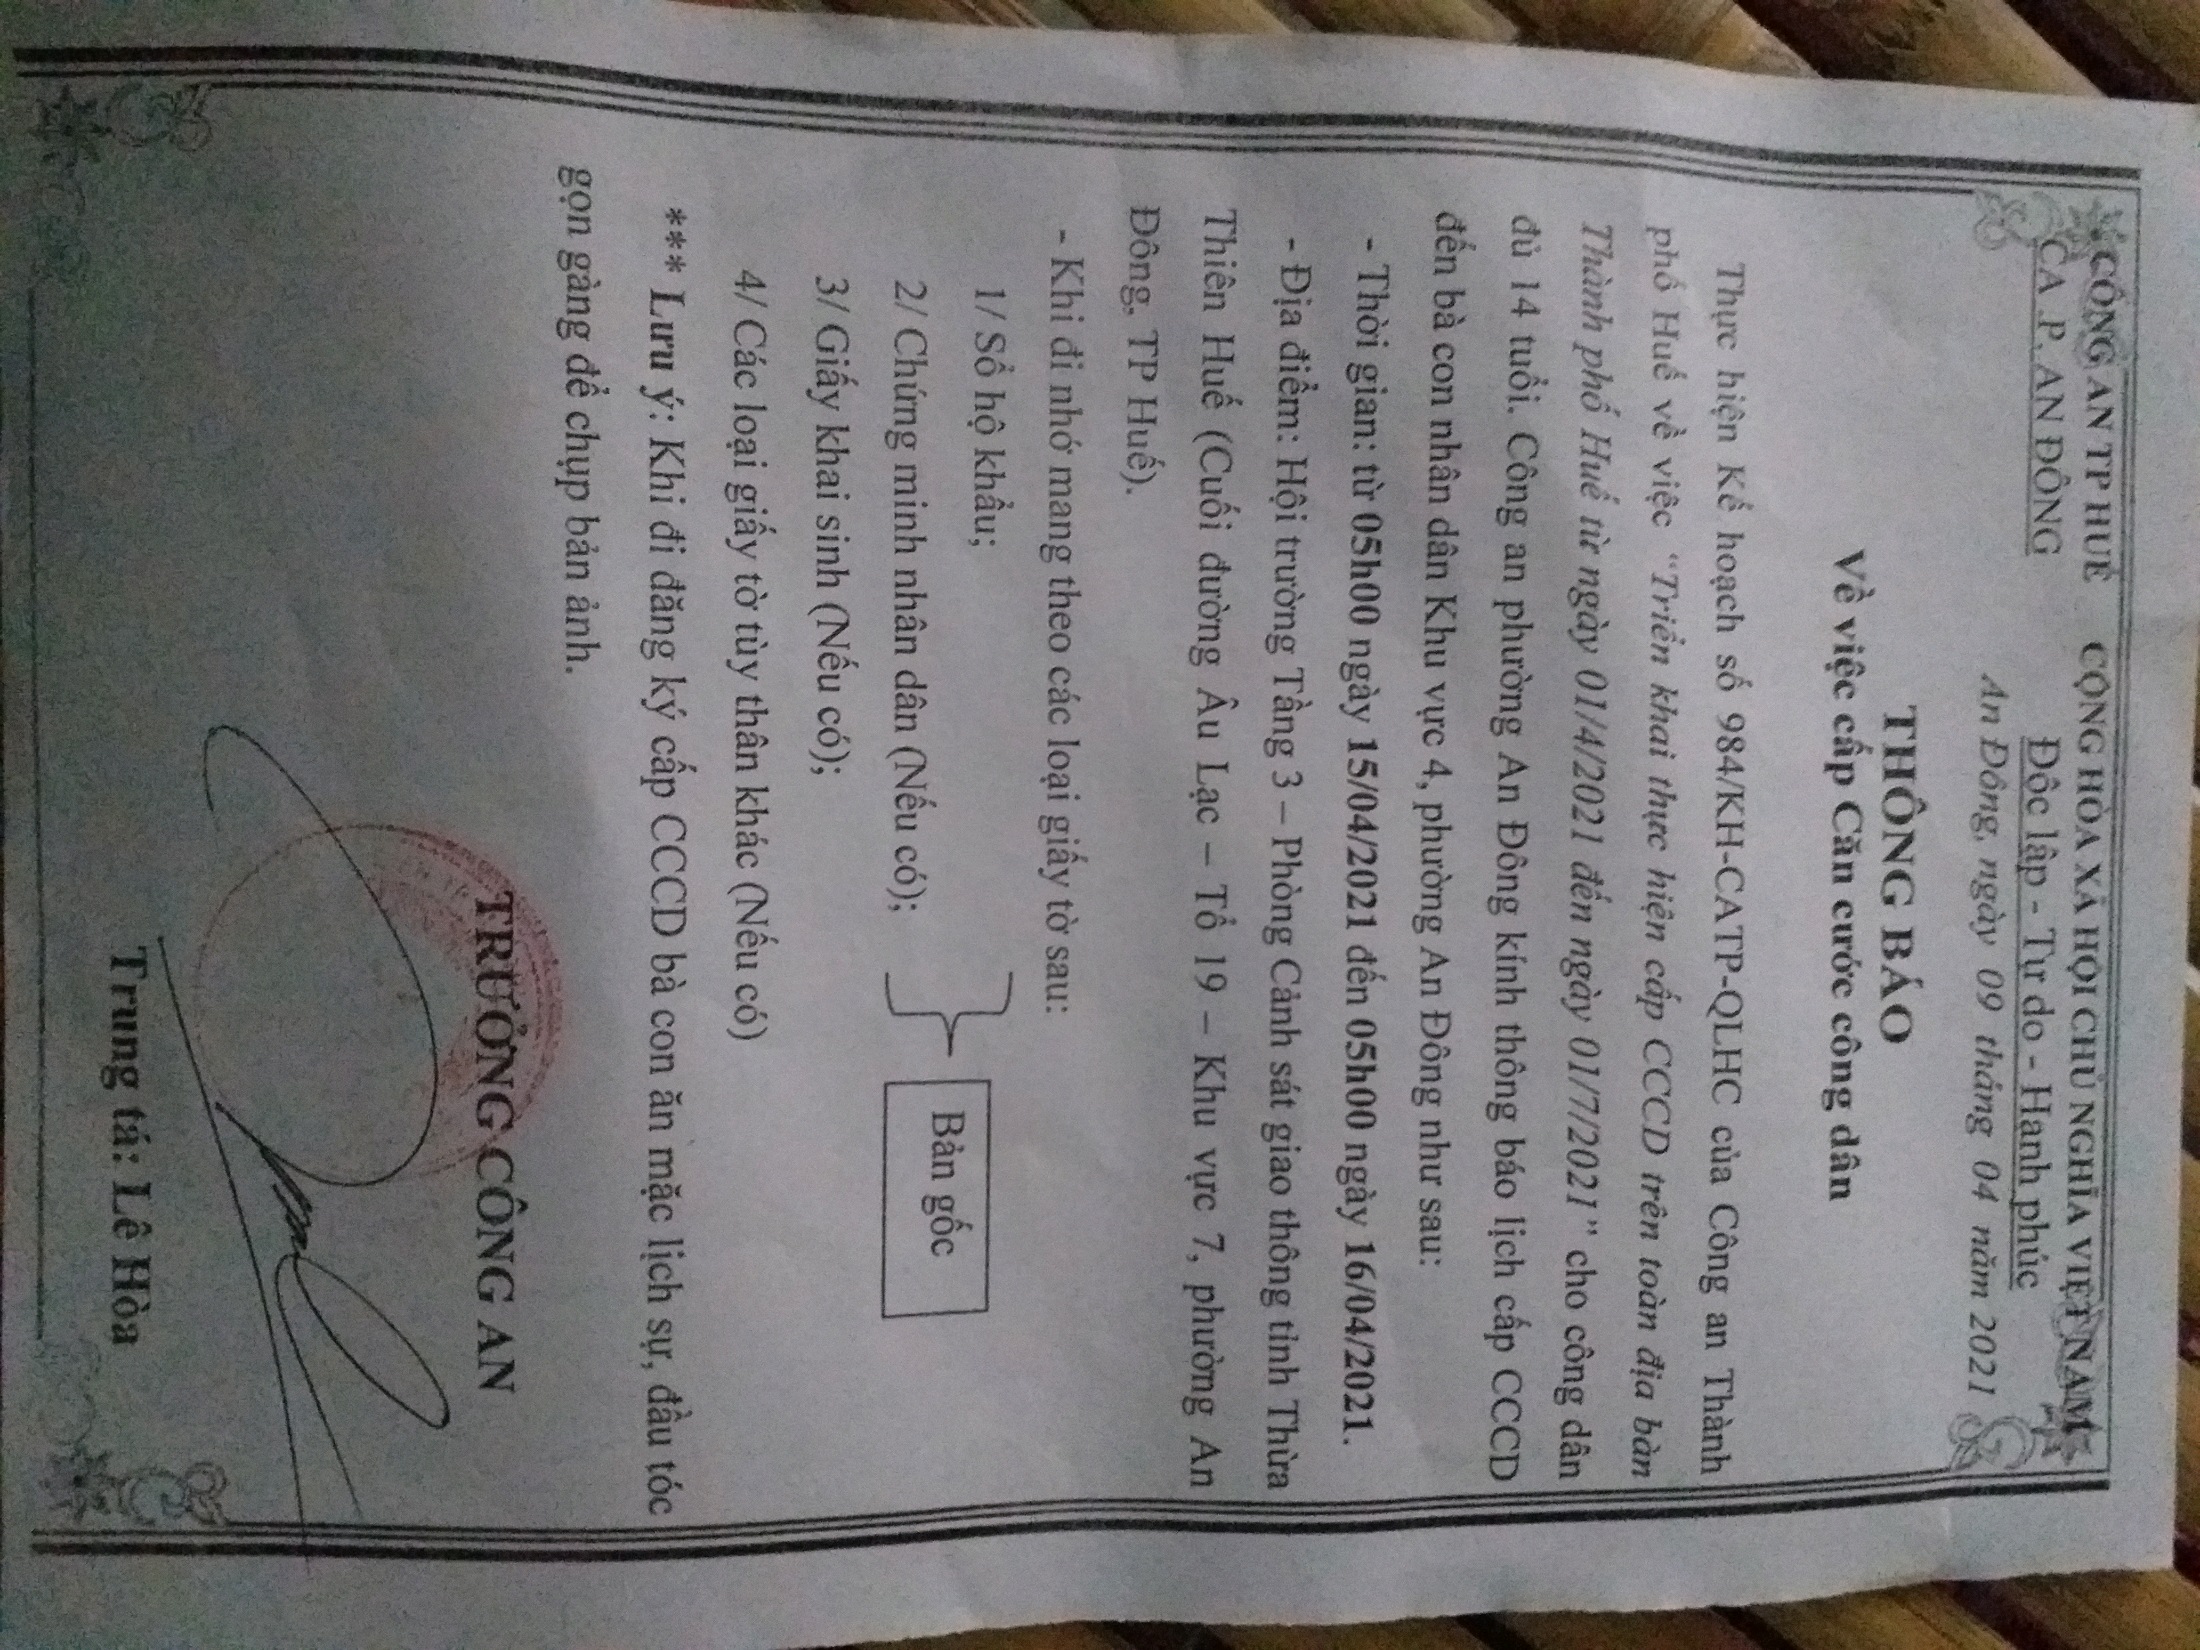 CÔNG AN TP HUẾ CỘNG HÒA XÃ HỘI CHỦ NGHĨA VIỆT NAM
CA .P. AN ĐÔNG Độc lập - Tự do - Hạnh phúc
An Đông, ngày 09 tháng 04 năm 2021
THÔNG BÁO
Về việc cấp Căn cước công dân
Thực hiện Kế hoạch số 984/KH-CATP-QLHC của Công an Thành
phố Huế về việc "Triển khai thực hiện cấp CCCD trên toàn địa bàn
Thành phố Huế từ ngày 01/4/2021 đến ngày 01/7/2021" cho công dân
đủ 14 tuổi. Công an phường An Đông kính thông báo lịch cấp CCCD
đến bà con nhân dân Khu vực 4, phường An Đông như sau:
- Thời gian: từ 05h00 ngày 15/04/2021 đến 05h00 ngày 16/04/2021.
- Địa điểm: Hội trường Tầng 3 – Phòng Cảnh sát giao thông tỉnh Thừa
Thiên Huế (Cuối đường Âu Lạc – Tổ 19 – Khu vực 7, phường An
Đông, TP Huế).
- Khi đi nhớ mang theo các loại giấy tờ sau:
1/ Sổ hộ khẩu;
2/ Chứng minh nhân dân (Nếu có);
Bản gốc
3/ Giấy khai sinh (Nếu có);
4/ Các loại giấy tờ tùy thân khác (Nếu có)
*** Lưu ý: Khi đi đăng ký cấp CCCD bà con ăn mặc lịch sự, đầu tóc
gọn gàng để chụp bản ảnh.
TRƯỞNG CÔNG AN
Trung tá: Lê Hòa